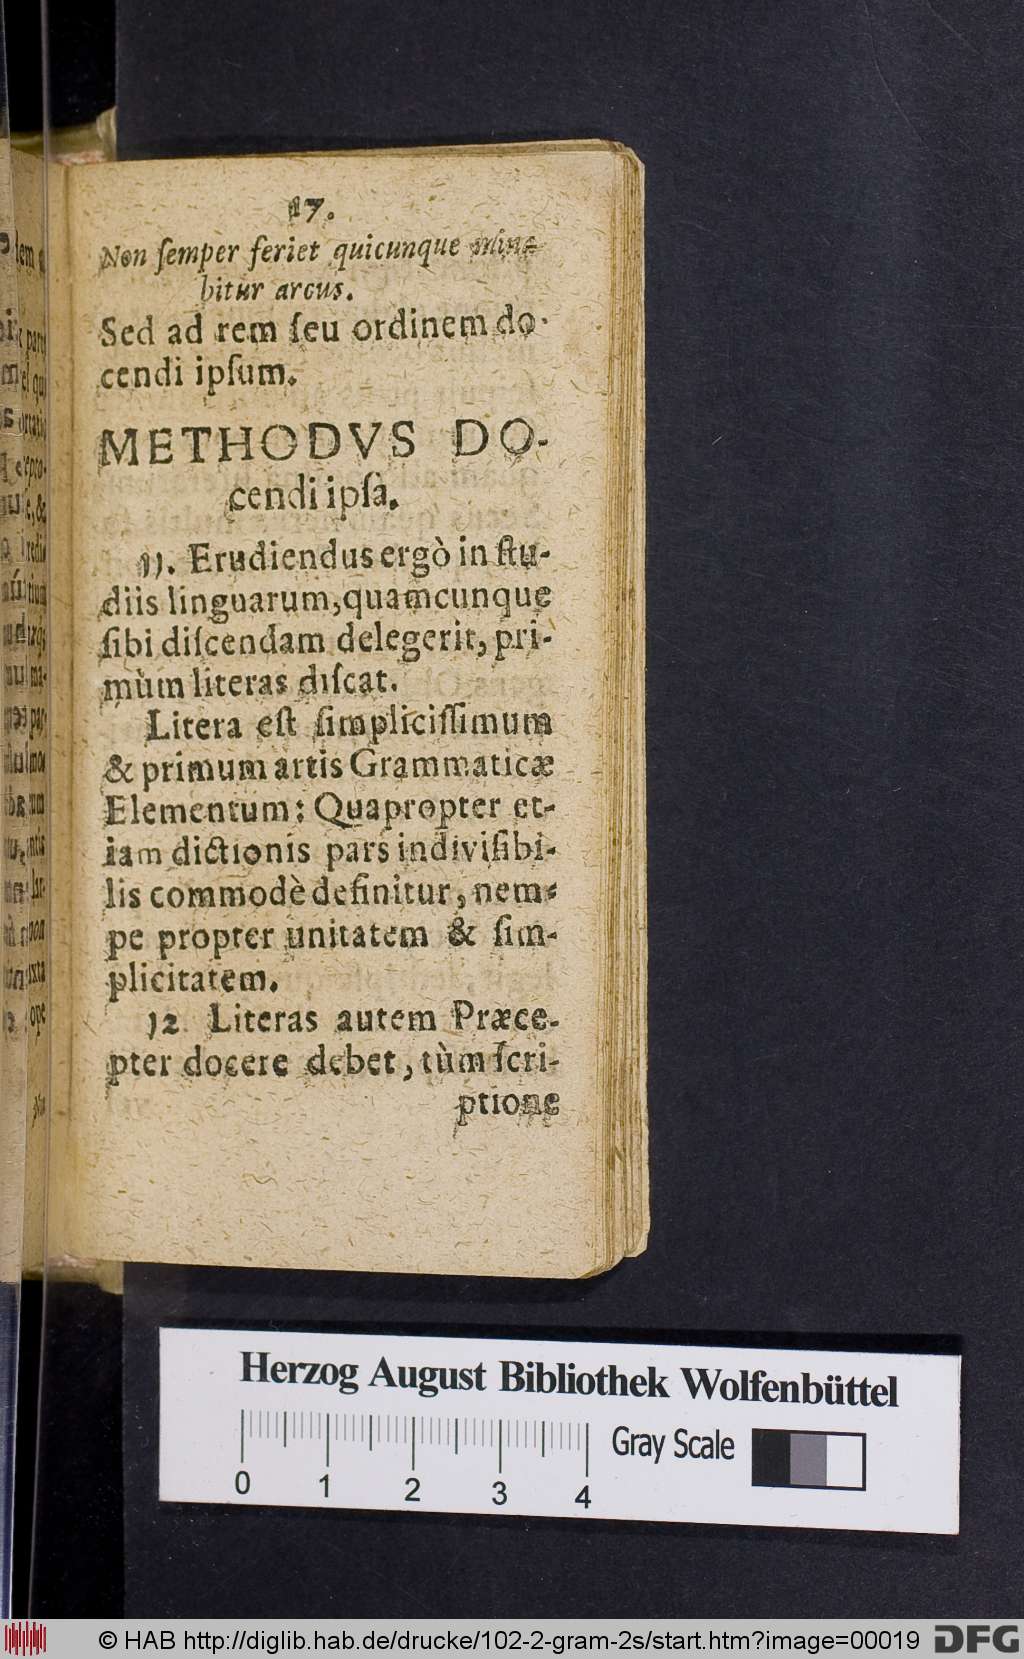 17.
Non ſemper feriet quicunque mina
bitur arcus.
Sed ad rem ſeu ordinem do-
cendi ipſum.
METHODVS DO-
cendi ipſa.
11. Erudiendus ergò in ſtu-
diis linguarum, quamcunque
ſibi diſcendam delegerit, pri-
mùm literas diſcat.
Litera eſt ſimpliciſſimum
& primum artis Grammaticæ
Elementum: Quapropter et-
iam dictionis pars indiviſibi-
lis commodè definitur, nem-
pe propter unitatem & ſim-
plicitatem.
12 Literas autem Præce-
pter docere debet, tùm ſcri-
ptione
Herzog August Bibliothek Wolfenbüttel
0 1 2 3 4
Gray Scale
© HAB http://diglib.hab.de/drucke/102-2-gram-2s/start.htm?image=00019
DFG